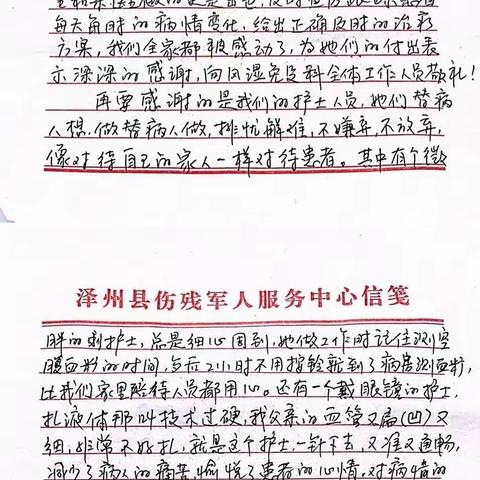 每天角时的病情变化，给出正确及时的治疗
方案，我们全家都被感动了，为她们的付出表
示深深的感谢，向风湿免疫科全体工作人员敬礼！
再要感谢的是我们的护士人员，她们替病
人想，做替病人做，排忧解难，不嫌弃，不放弃，
像对待自己的家人一样对待患者。其中有个微
泽州县伤残军人服务中心信笺
胖的刺护士，总是细心周到，她做工作时记住测空
腹血糖的时间，与后2小时不用按铃就到了病房测血糖，
比我们家里陪待人员都用心。还有一个戴眼镜的护士，
扎液体那叫技术过硬，我父亲的血管又扁(凹)又
细，非常不好扎，就是这个护士，一针下去，又准又通畅，
减少了病人的痛苦，愉悦了患者的心情，对病情的